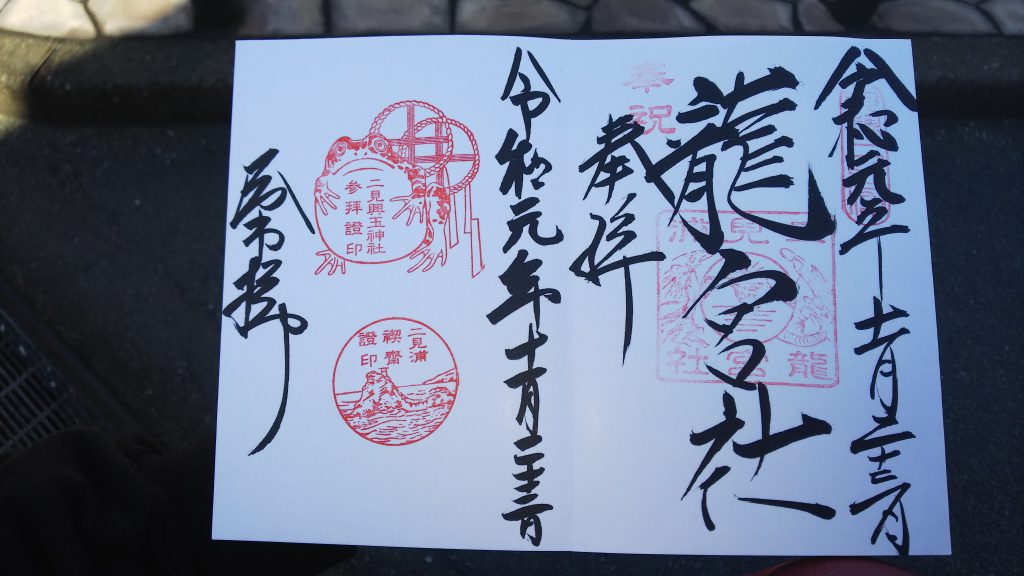 令和元年十一月二十三日
龍宮社
二見浦
龍宮社
奉祝
奉拝
令和元年十一月二十三日
二見興玉神社
参拜證印
二見浦
禊齋
證印